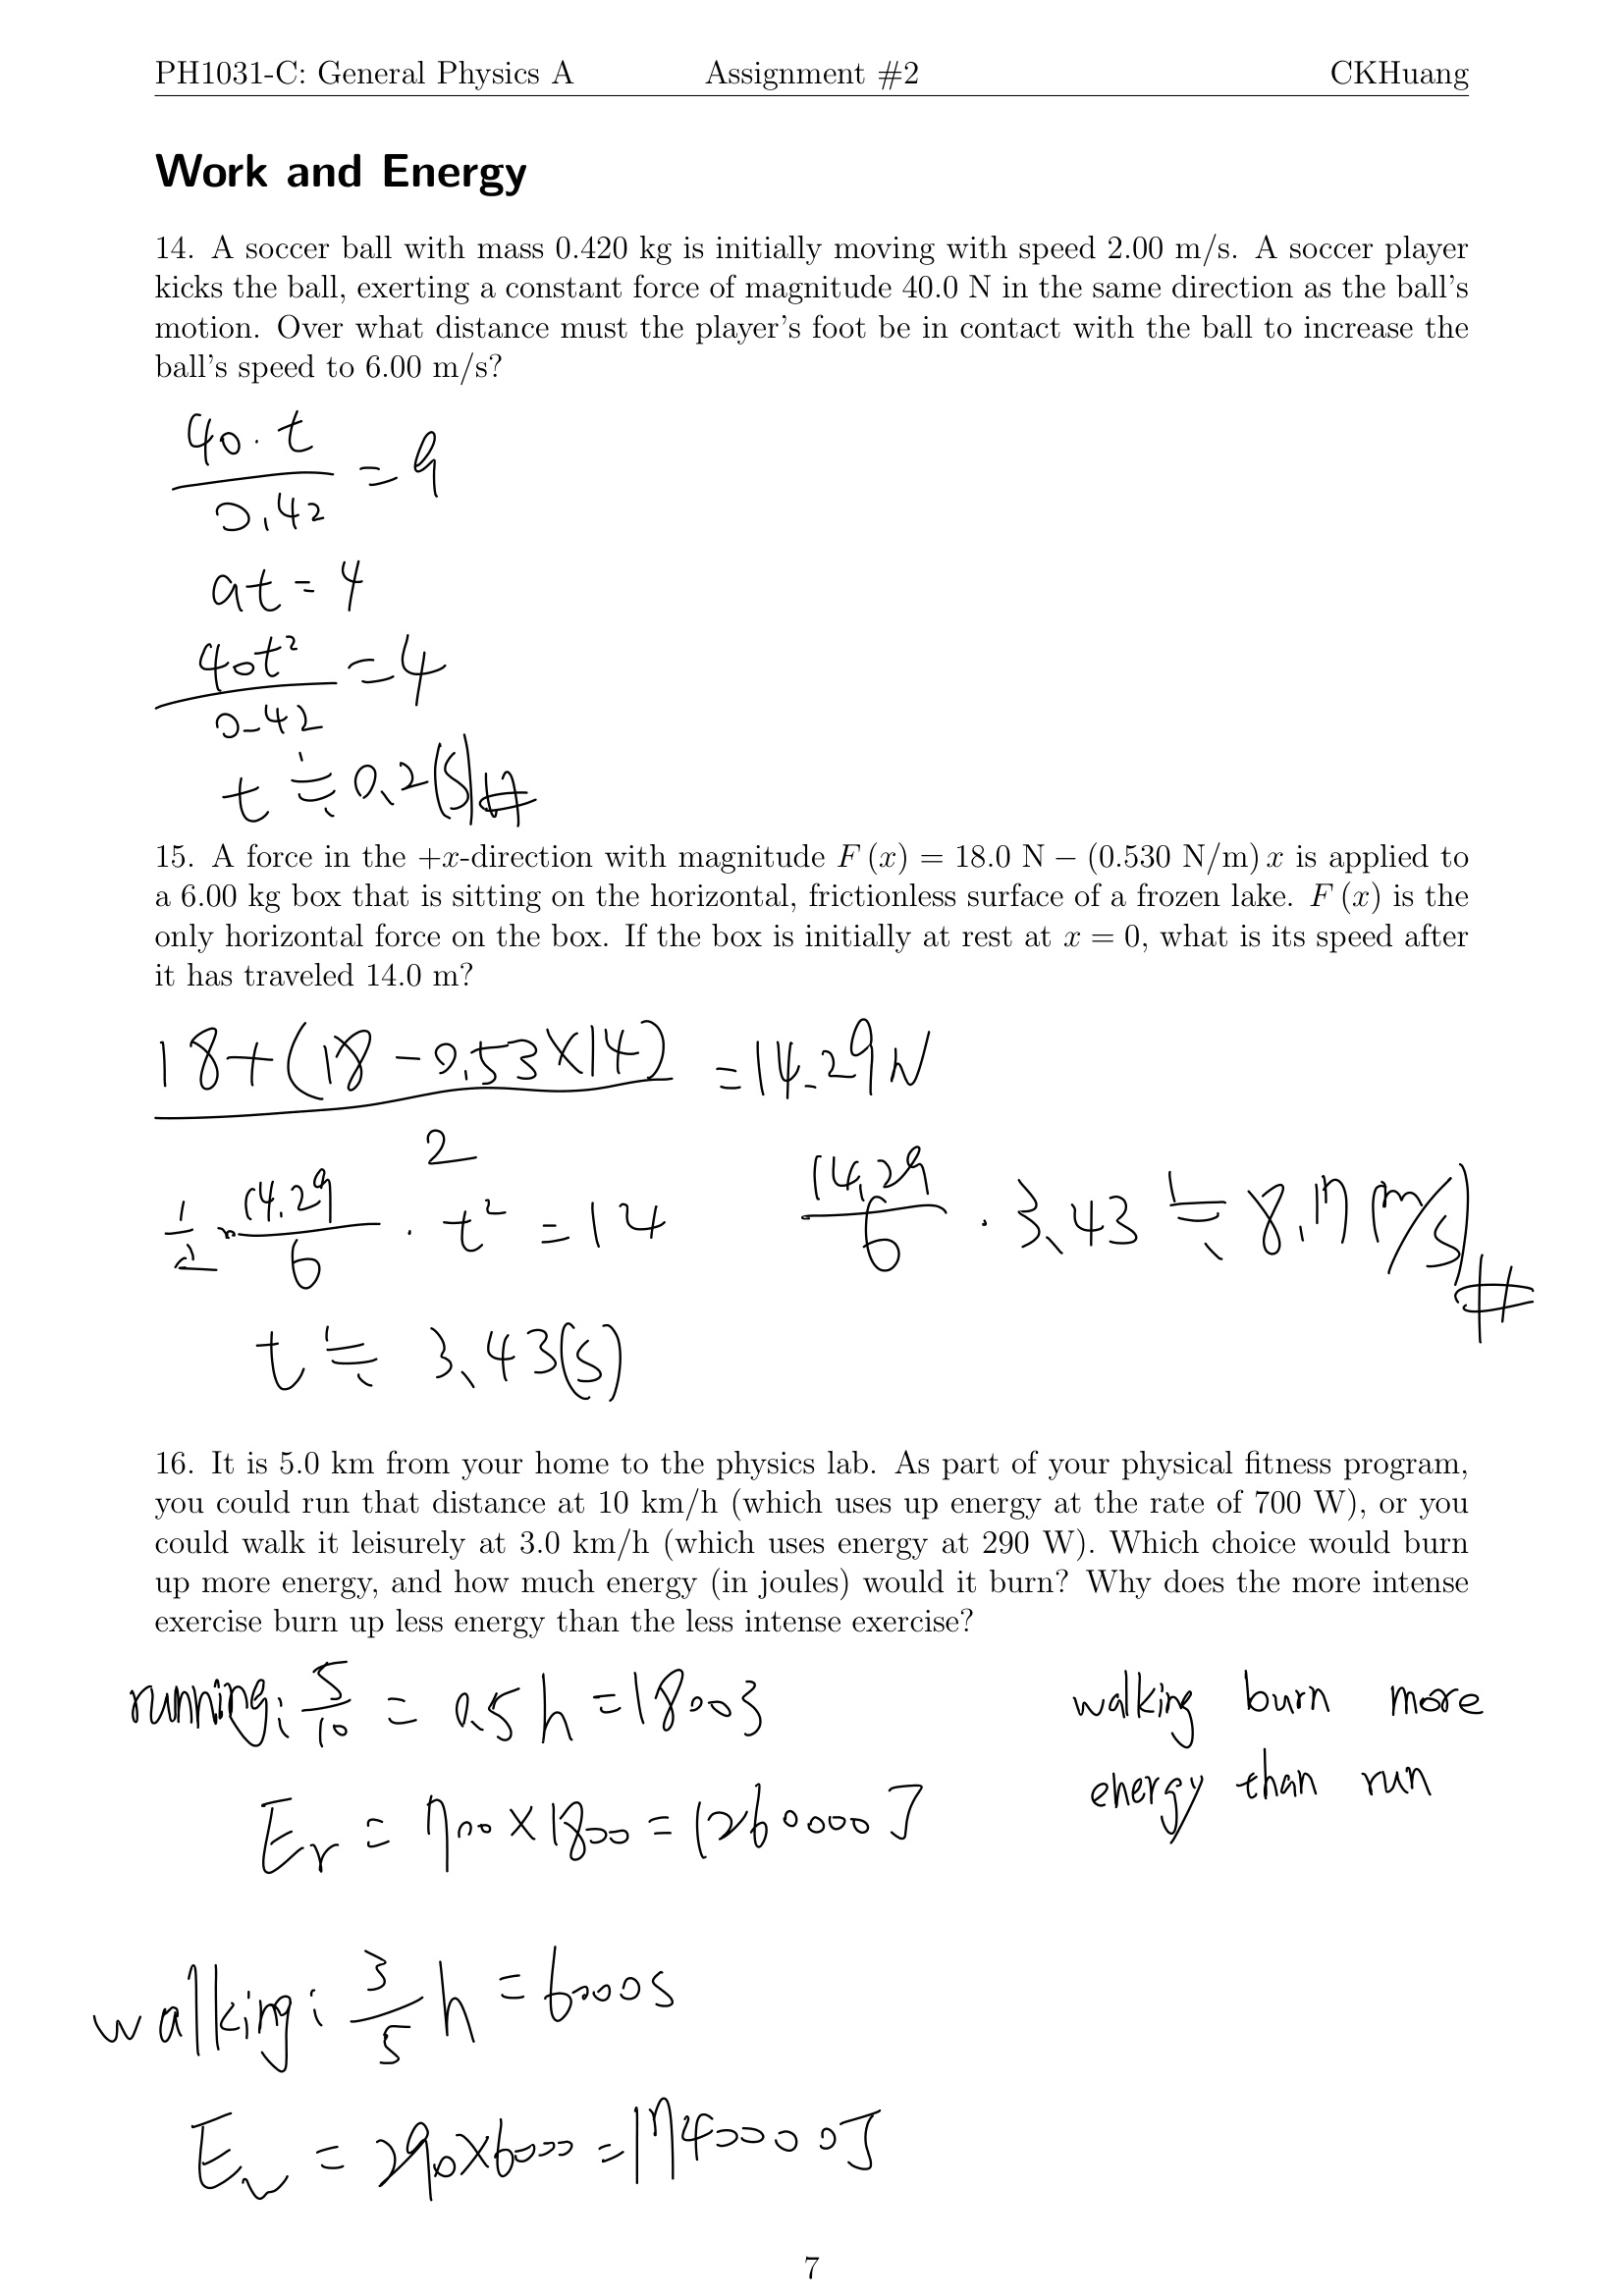 PH1031-C: General Physics A Assignment #2 CKHuang
Work and Energy
14. A soccer ball with mass 0.420 kg is initially moving with speed 2.00 m/s. A soccer player
kicks the ball, exerting a constant force of magnitude 40.0 N in the same direction as the ball's
motion. Over what distance must the player's foot be in contact with the ball to increase the
ball's speed to 6.00 m/s?
40·t
0.42
=9
at=4
40t²
0.42
=4
t≒0.2(s)#
15. A force in the +x-direction with magnitude F (x) = 18.0 N − (0.530 N/m) x is applied to
a 6.00 kg box that is sitting on the horizontal, frictionless surface of a frozen lake. F (x) is the
only horizontal force on the box. If the box is initially at rest at x = 0, what is its speed after
it has traveled 14.0 m?
18+(18-0.53×14)
2
=14.29N
1/2 × 14.29/6 · t² = 14
14.29/6 · 3.43 ≒ 8.17(m/s)#
t ≒ 3.43(s)
16. It is 5.0 km from your home to the physics lab. As part of your physical fitness program,
you could run that distance at 10 km/h (which uses up energy at the rate of 700 W), or you
could walk it leisurely at 3.0 km/h (which uses energy at 290 W). Which choice would burn
up more energy, and how much energy (in joules) would it burn? Why does the more intense
exercise burn up less energy than the less intense exercise?
running: 5/10 = 0.5h = 1800s
walking burn more
energy than run
Er = 700×1800 = 1260000J
walking: 3/5 h = 6000s
Ew = 290×6000 = 1740000J
7